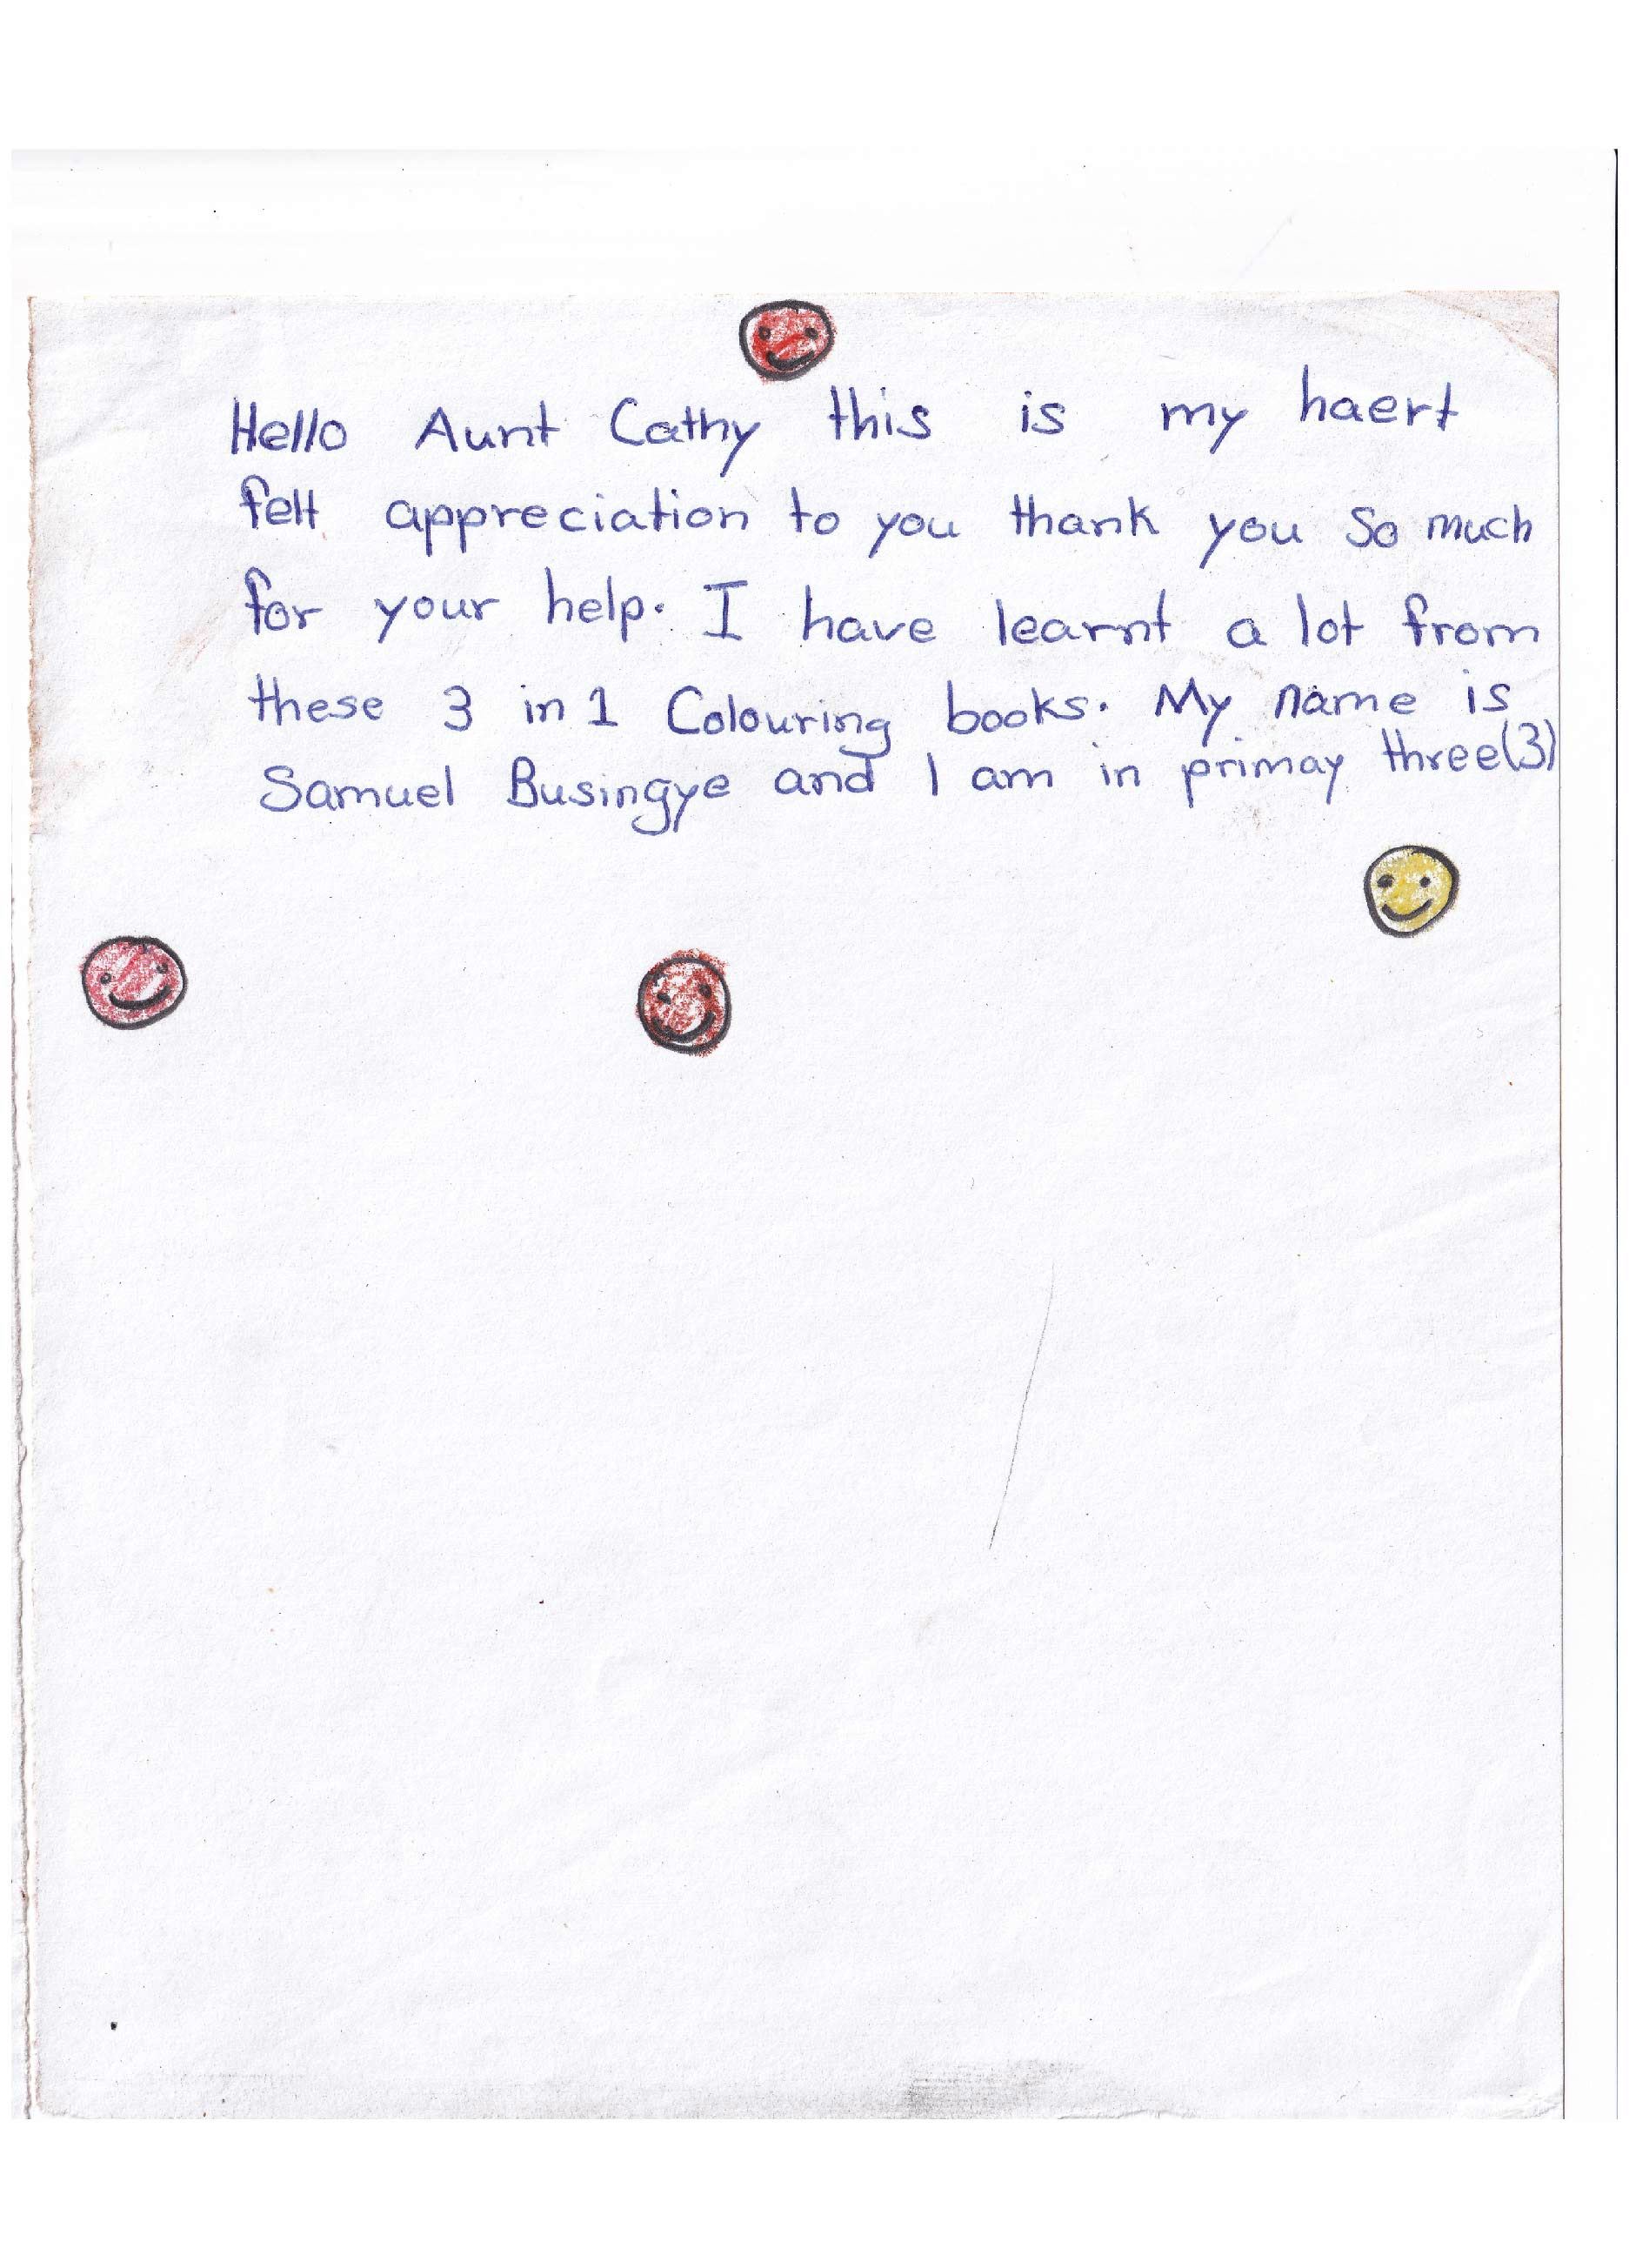 Hello Aunt Cathy this is my haert
felt appreciation to you thank you so much
for your help. I have learnt a lot from
these 3 in 1 Colouring books. My name is
Samuel Busingye and I am in primay three(3)